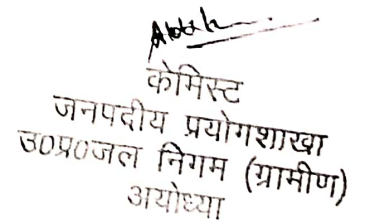 केमिस्ट
जनपदीय प्रयोगशाखा
उ०प्र०जल निगम (ग्रामीण)
अयोध्या